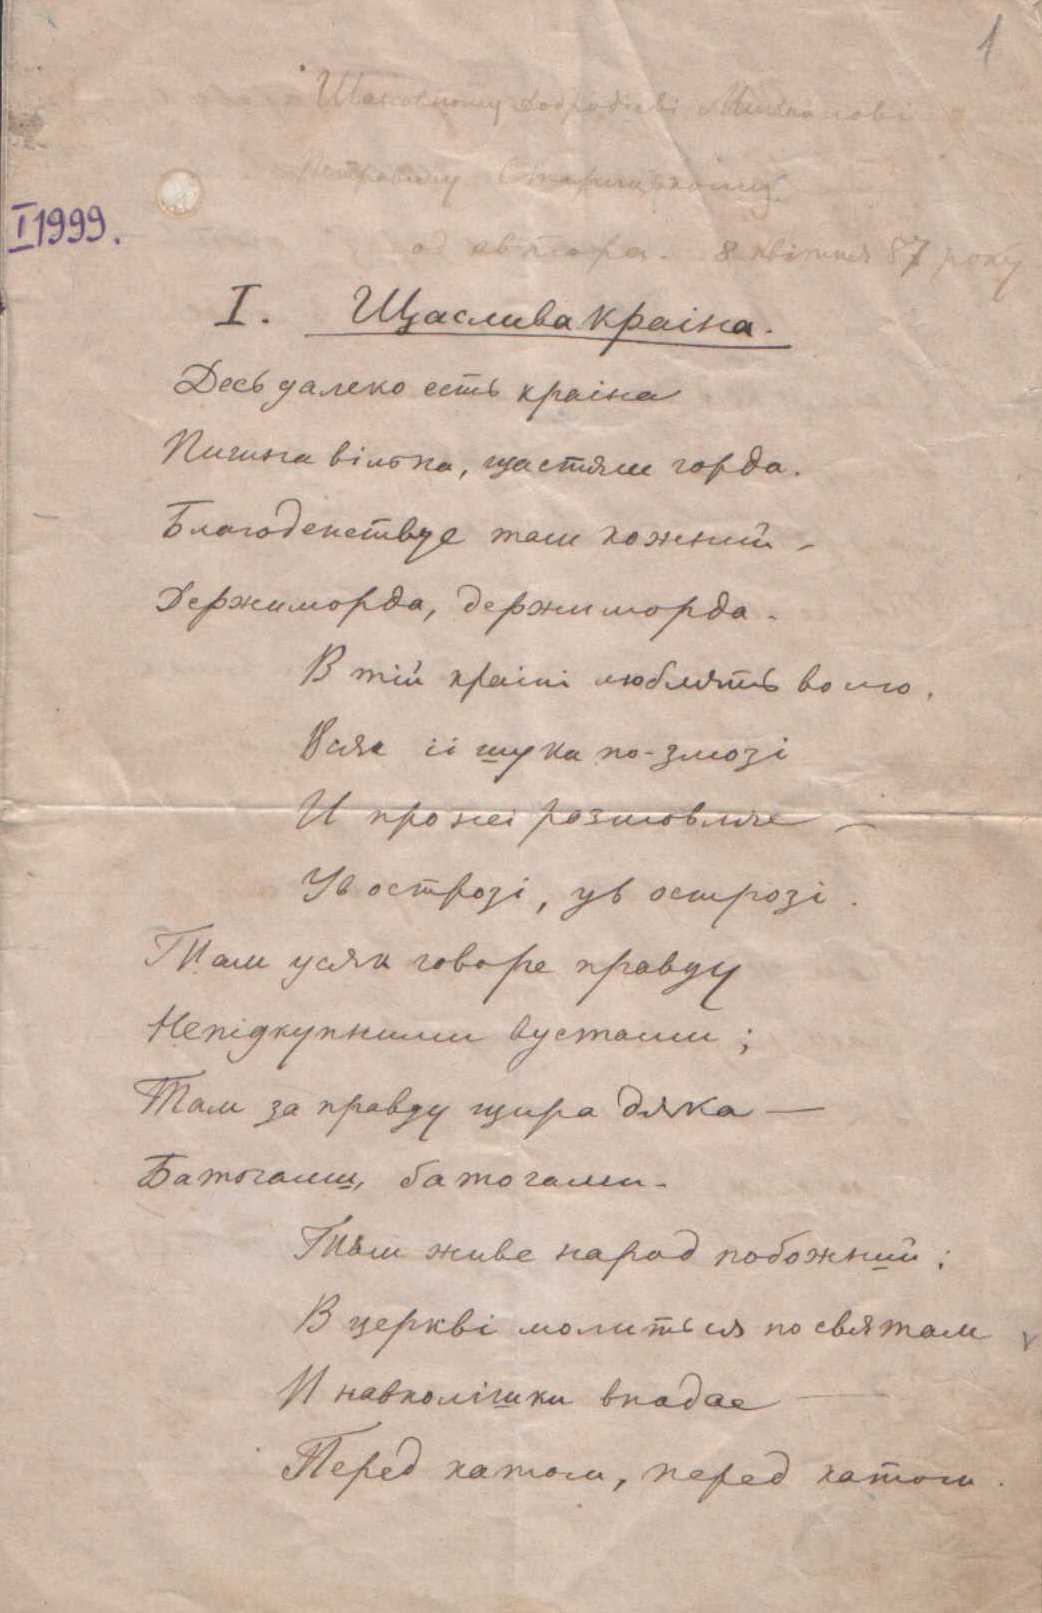 1
Шановному Добродієві Михайлові
Петровичу Старицькому.
од автора. 8 квітня 87 року
I 1999.
I. Щаслива країна.
Десь далеко есть країна
Пишна вільна, щастям горда.
Благоденствує там кожний –
Держиморда, держиморда.
В тій країні люблять волю,
Всяк її шука по-змозі
И про неї розмовляє –
Ув острозі, ув острозі.
Там усяк говоре правду
Непідкупними вустами;
Там за правду щира дяка —
Батогами, батогами.
Там живе народ побожний:
В церкві молиться по святам
И навколішки впадає —
Перед катом, перед катом.